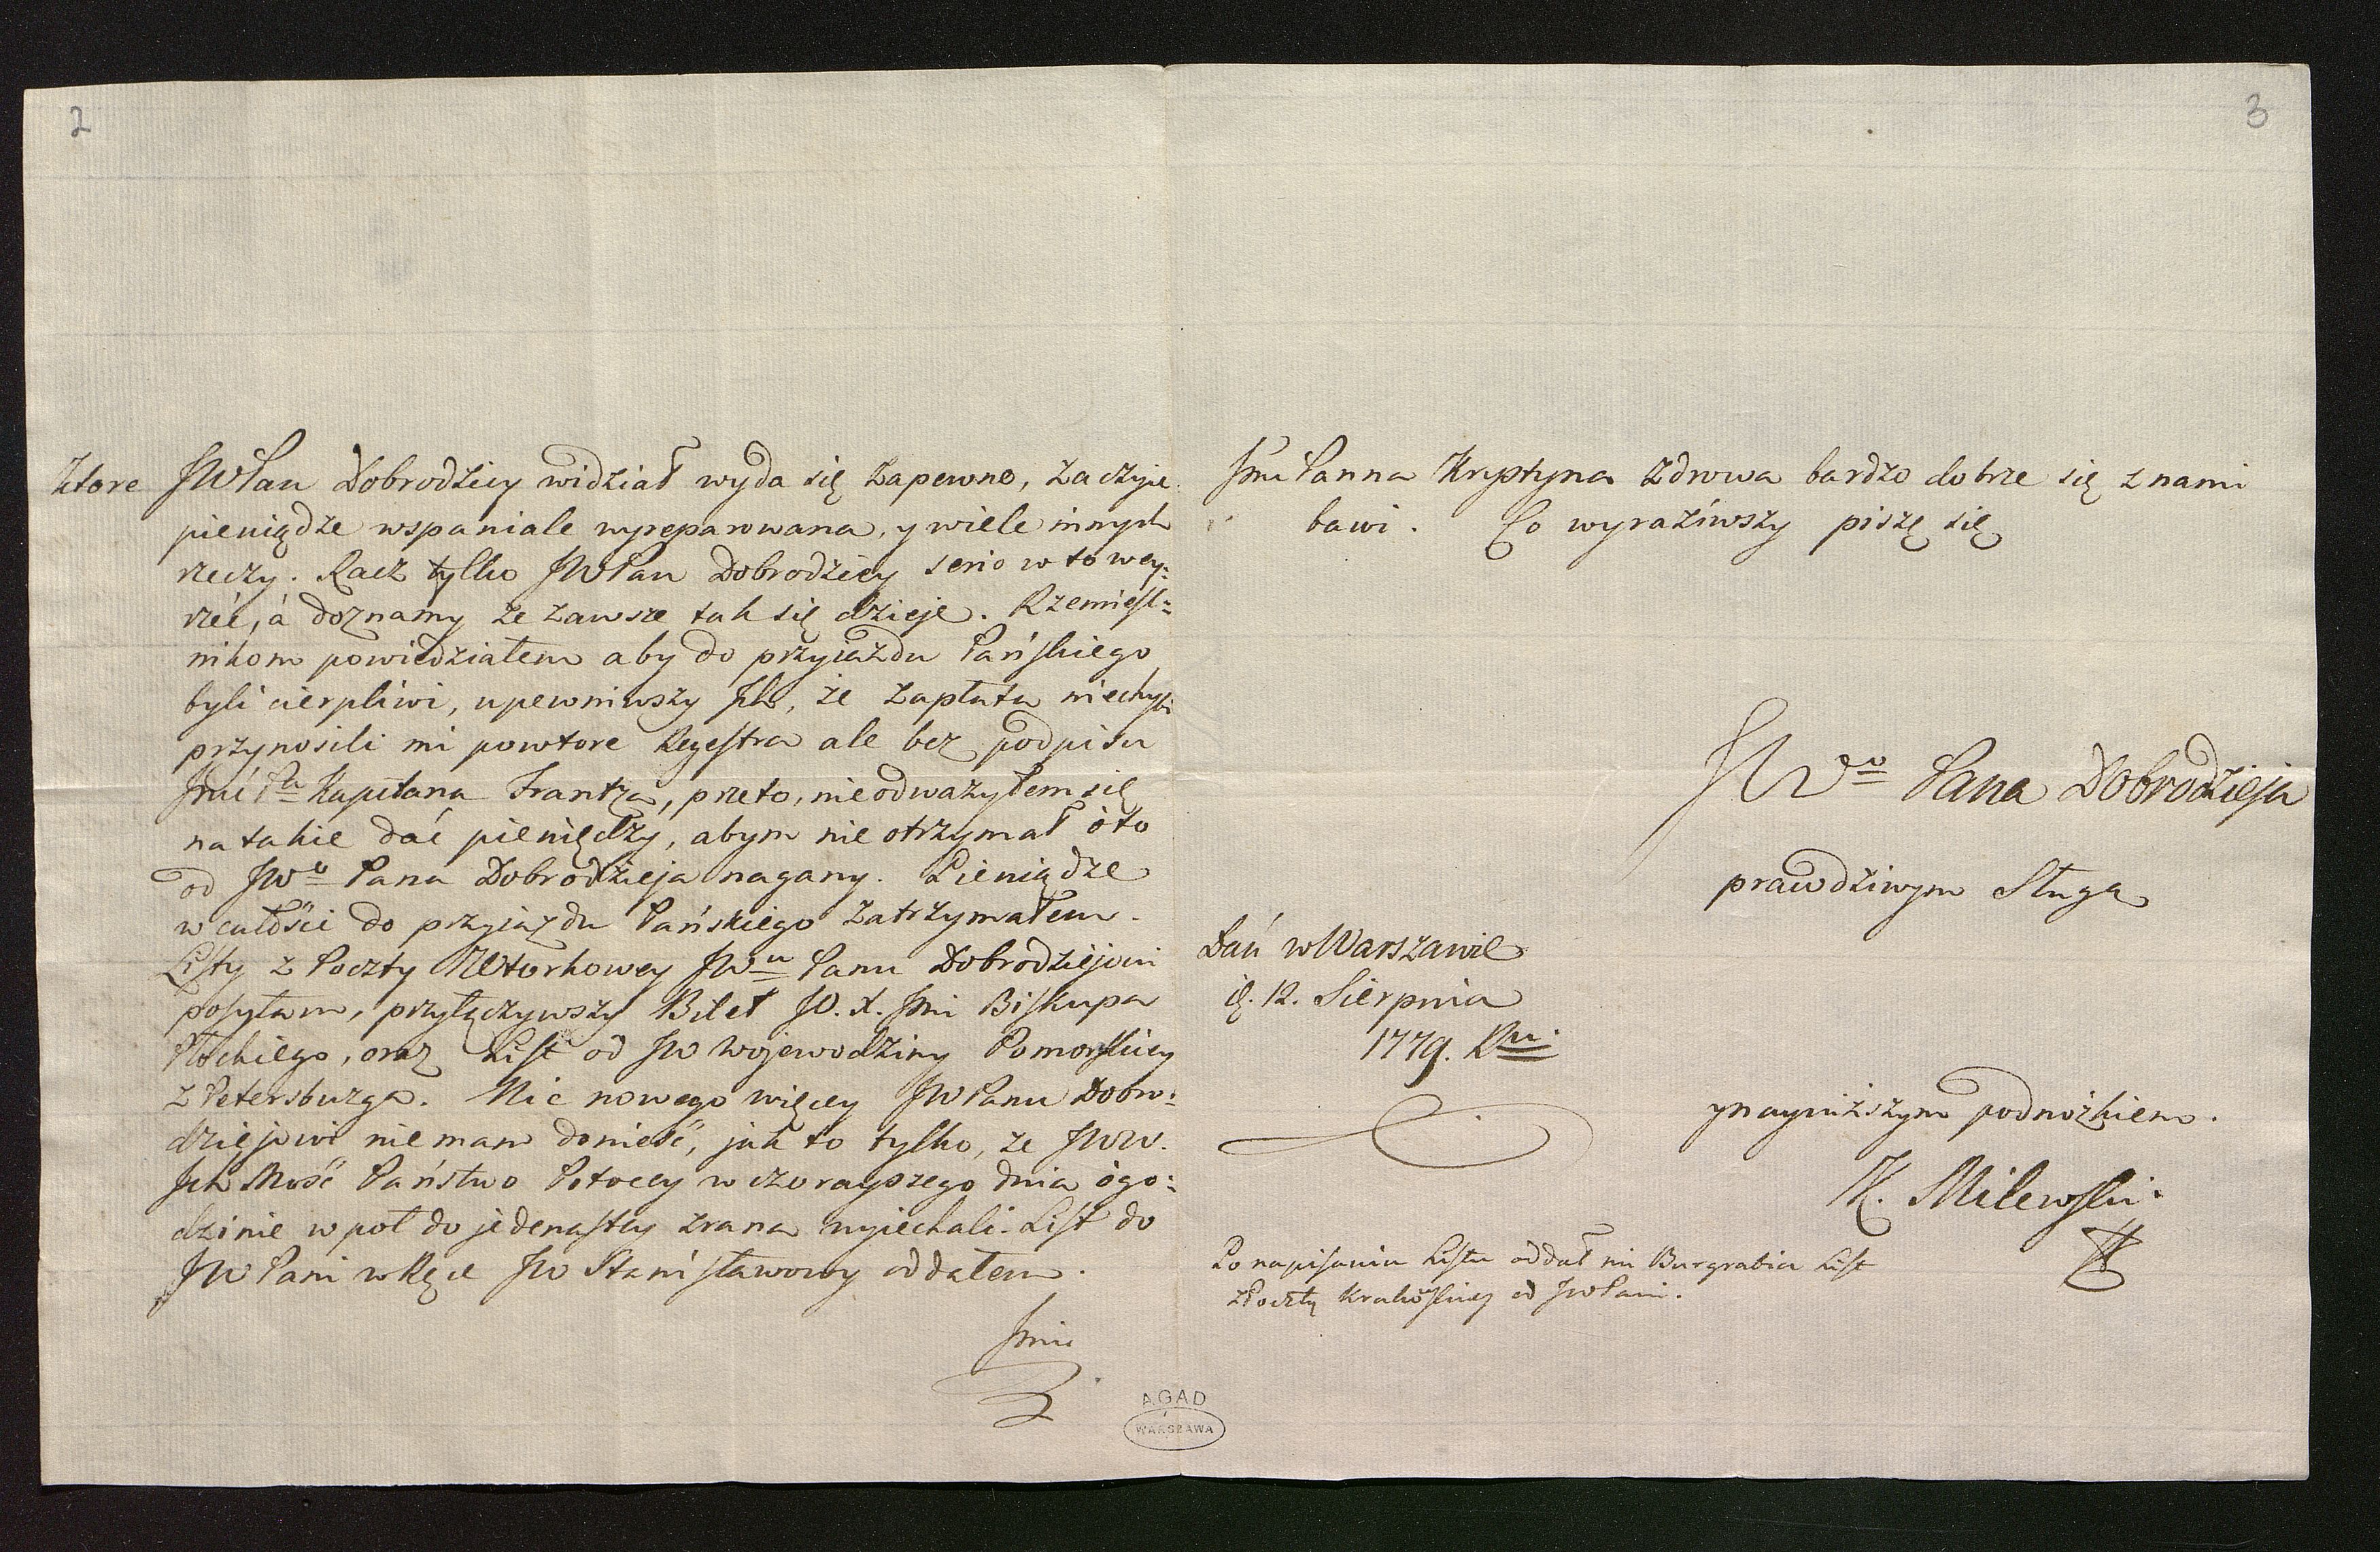 2
Ktore JWPan Dobrodziey widział wyda się zapewne, za czyie
pieniądze wspaniale wyreparowana, y wiele innych
rzeczy. Racz tylko JWPan Dobrodziey serio w to wey:
rzéć, á doznamy że zawsze tak się dzieje. Rzemięśl=
nikom powiedziałem aby do przyiazdu Pańskiego
byli cierpliwi, upewniwszy Jch, że zapłata niechybi
przynosili mi powtore Regestra ale bez podpisu
Jmći Pa Kapitana Frantza, przeto, nie odważyłem się
na takie dać pieniędzy, abym nie otrzymał o to
od JWo Pana Dobrodzieja nagany. Pieniądze
w całości do przyiazdu Pańskiego zatrzymałem.
Listy z Poczty Wtorkowey JWu Panu Dobrodziejowi
posyłam, przyłączywszy Bilet JO. X. Jmi Biskupa
Płockiego, oraz List od JW Wojewodziny Pomorskiey
z Petersburga. Nic nowego więcey JWPanu Dobro:
dziejowi nie mam donieść, jak to tylko, że JWW.
Jch Mość Państwo Potoccy wczorayszego dnia ó go:
dzinie w poł do jedenastey zrana wyiechali. List do
JWPani w Ręce JW Stanisławowy oddałem.
Jmć
AGAD
WARSZAWA
3
Jmć Panna Krystyna zdrowa bardzo dobrze się z nami
bawi. Co wyraziwszy piszę się
JWgo Pana Dobrodzieja
prawdziwym Sługą
Dań w Warszawie
d. 12. Sierpnia
1779. Rku
y nayniższym podnóżkiem.
K. Milewski.
Po napisaniu Listu oddał mi Burgrabia List
z Poczty Krakowskiey od JWPani.